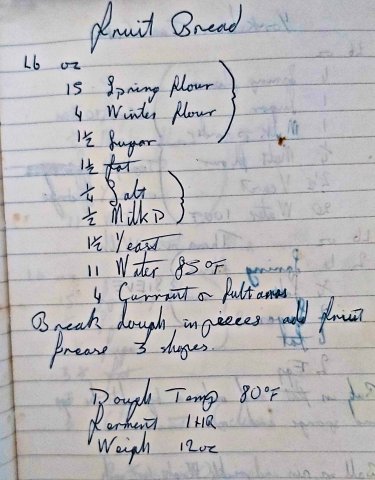 Fruit Bread
Lb oz
15 Spring flour
4 Winter flour
1½ Sugar
1½ fat
¼ Salt
½ Milk P
1½ Yeast
11 Water 85°F
4 Currant or Sultanas
Break dough in pieces add fruit
3 shapes.
Dough Temp 80°F
Ferment 1HR
Weigh 12oz